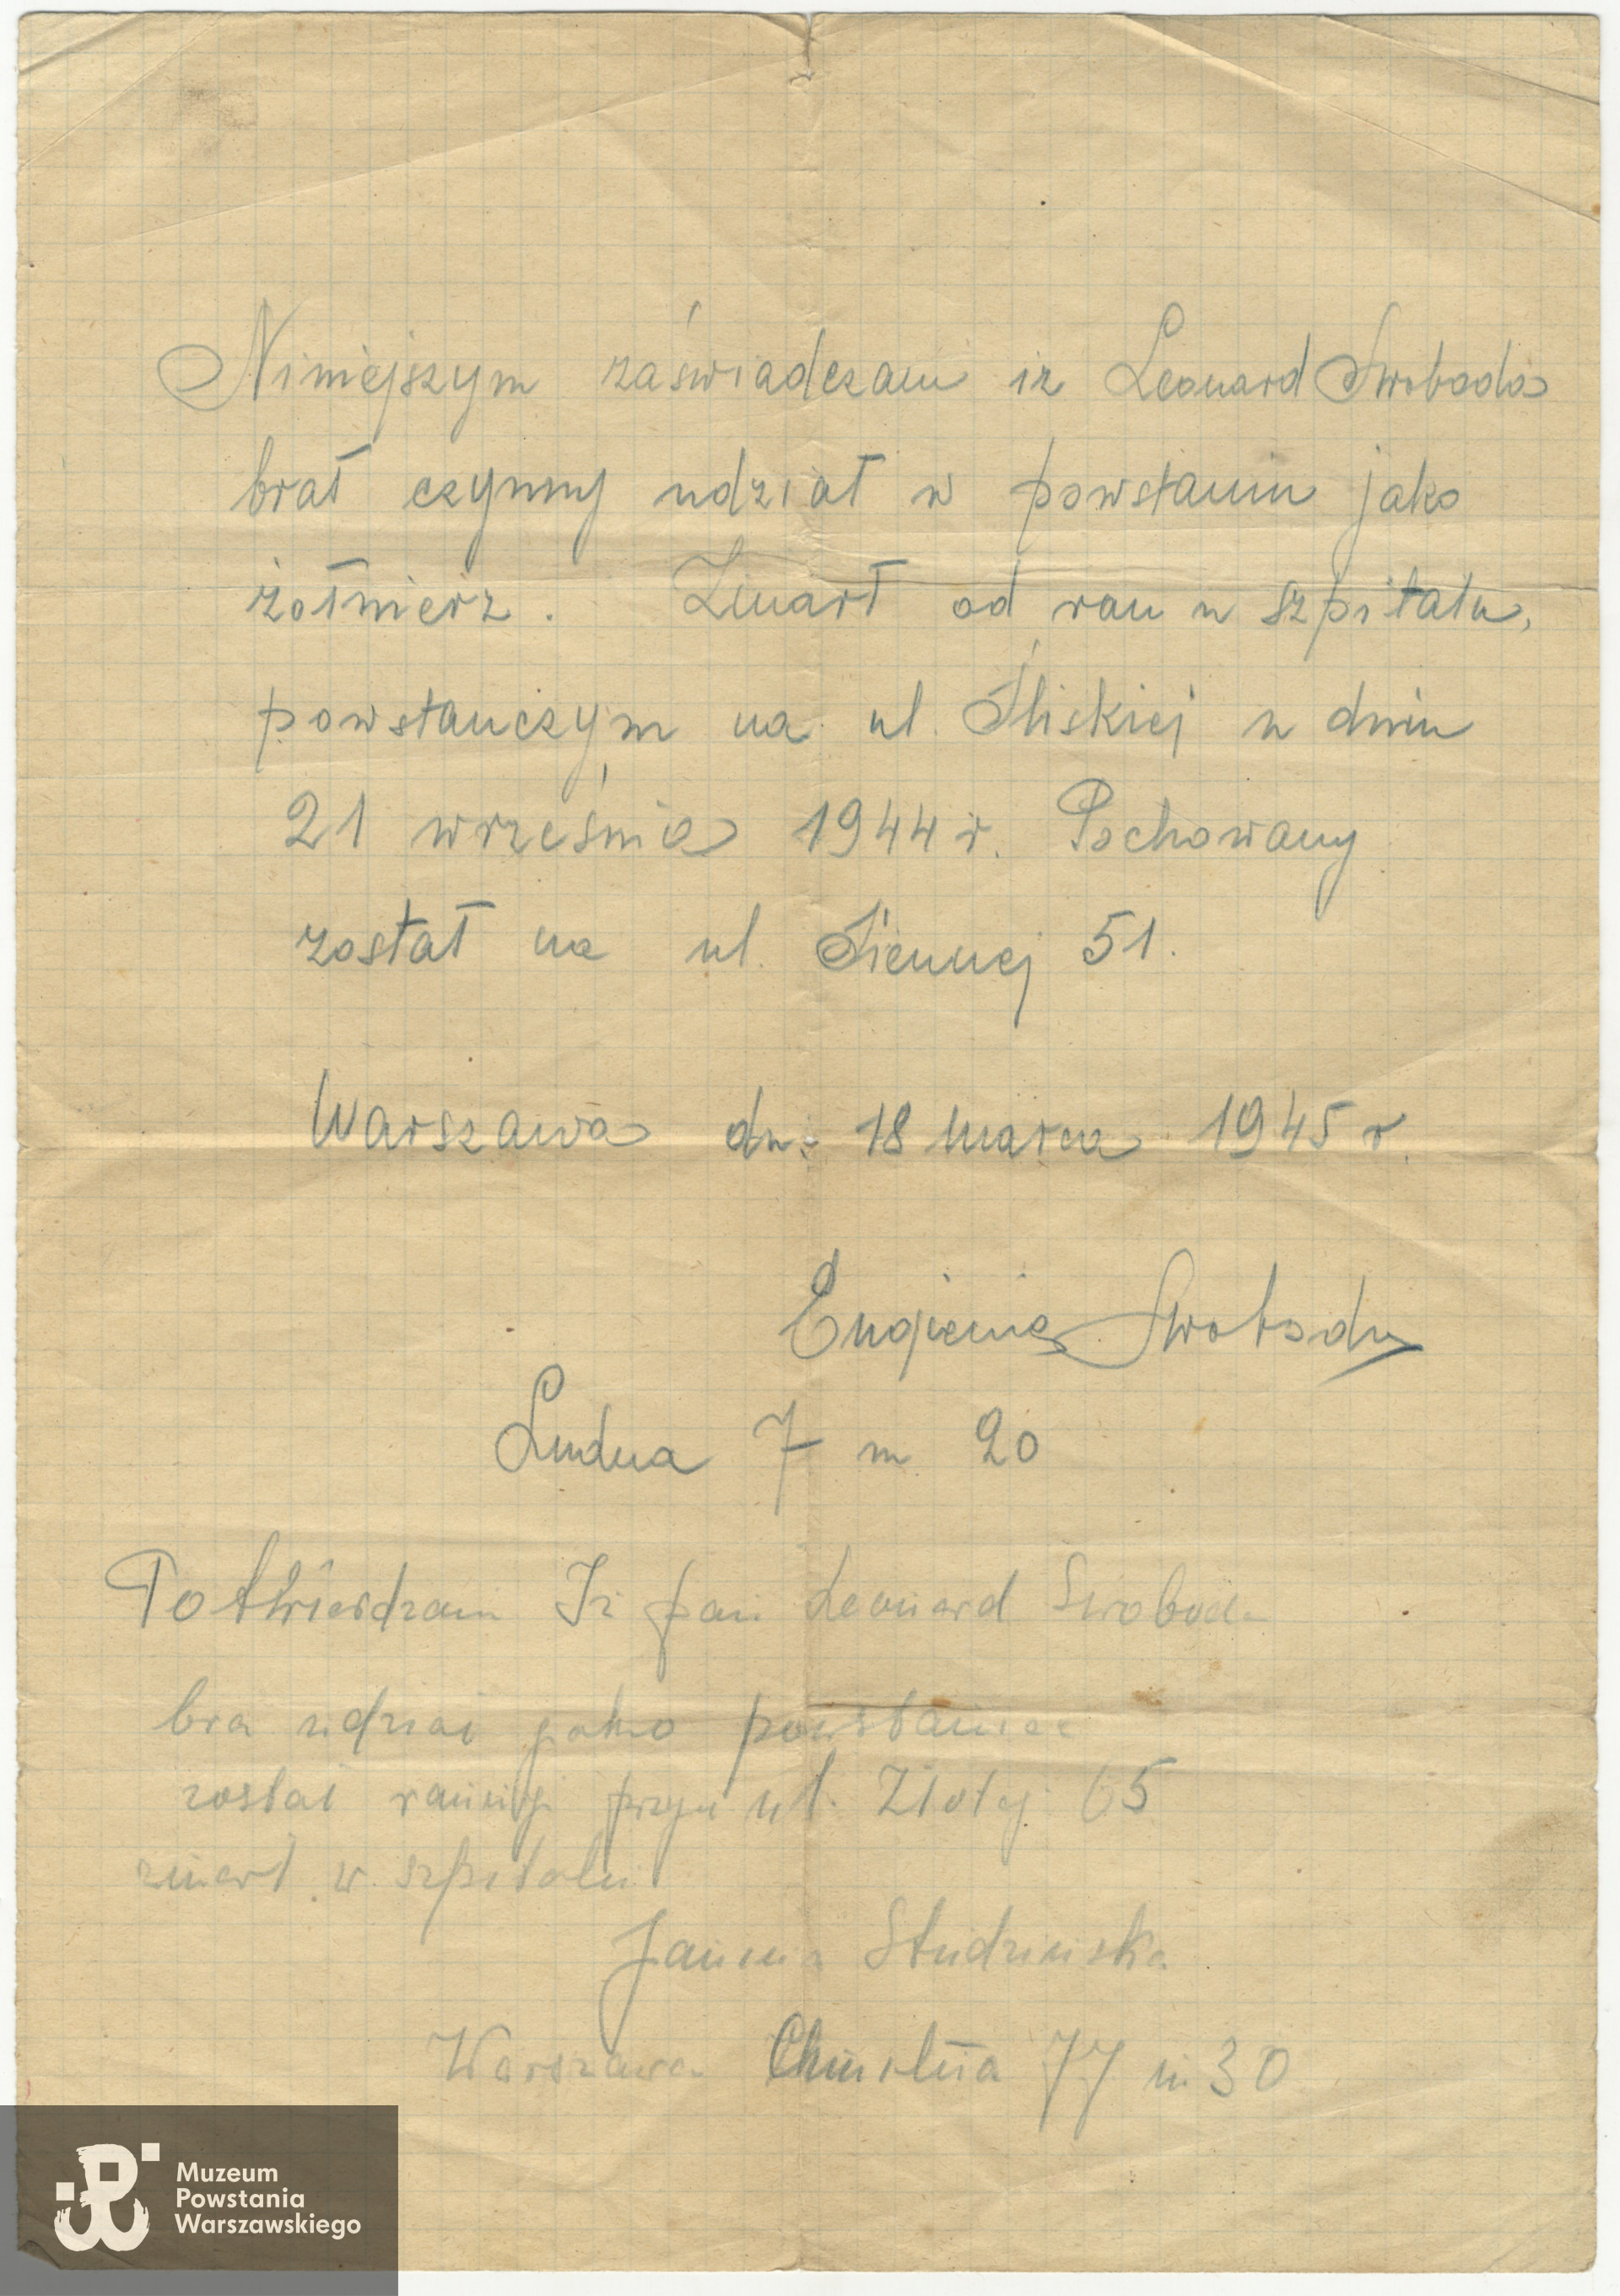 Niniejszym zaświadczam iż Leonard Swoboda
brał czynny udział w powstaniu jako
żołnierz. Zmarł od ran w szpitalu,
powstańczym na ul. Śliskiej w dniu
21 września 1944 r. Pochowany
został na ul. Siennej 51.
Warszawa dn. 18 marca 1945 r.
Eugienia Swoboda
Ludna 7 m 20
Potwierdzam Iż pan Leonard Swoboda
bra udział jako powstaniec
został raniny przy ul. Złotej 65
zmarł w szpitalu
Janina Studzinska
Warszawa Chmielna 77 m 30
Muzeum
Powstania
Warszawskiego